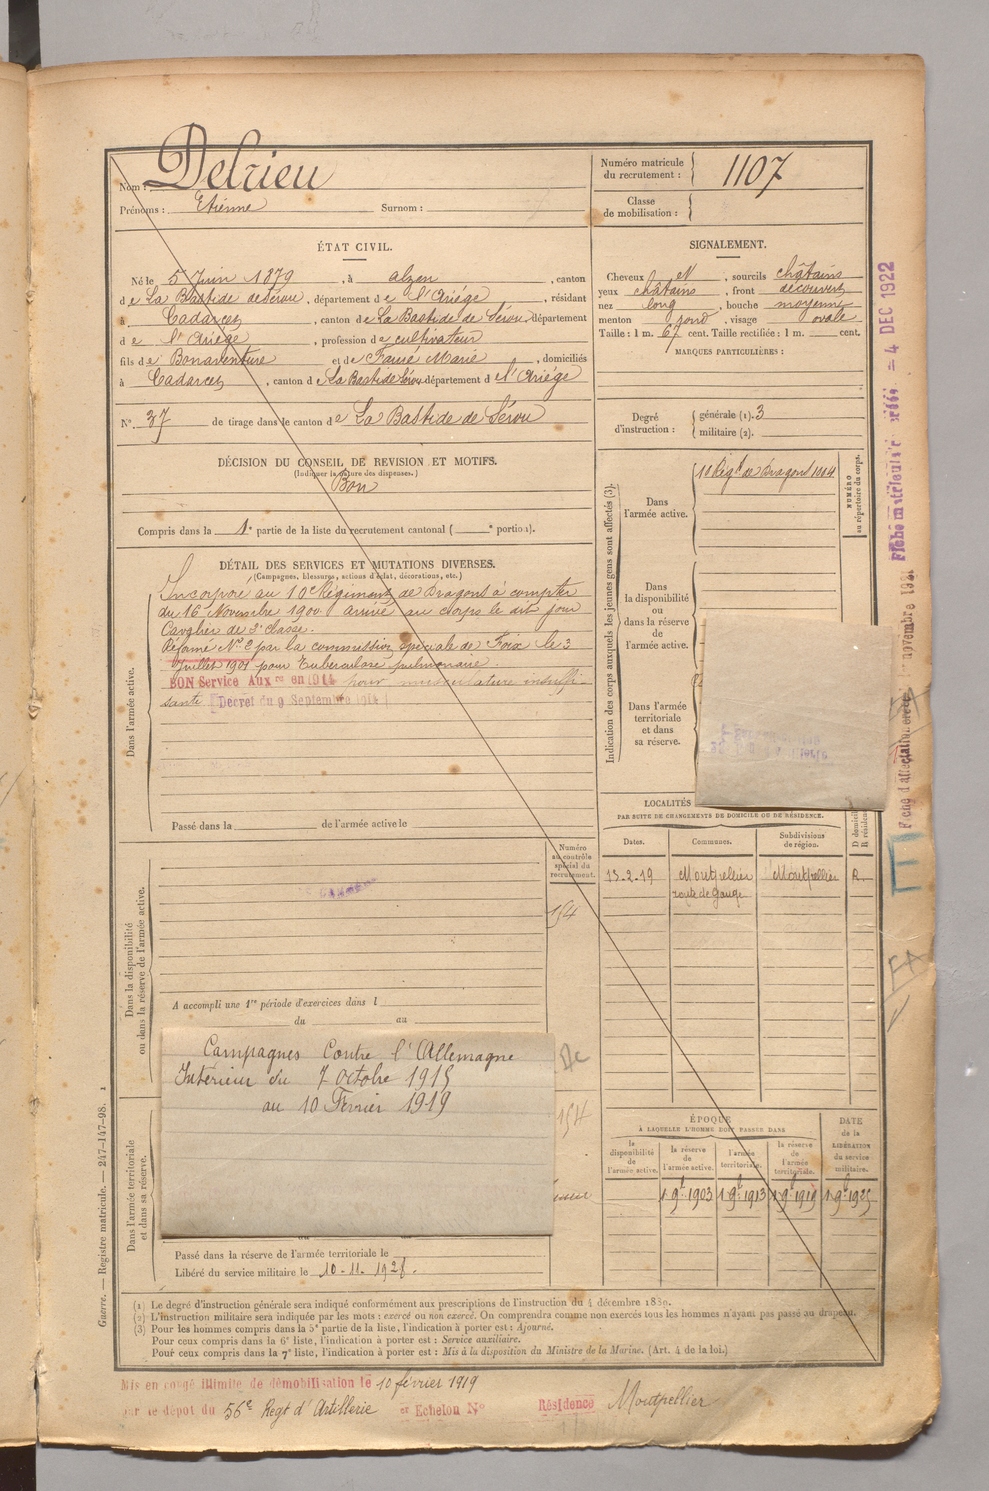 Nom : Delrieu
Prénoms : Etienne Surnom :
Numéro matricule
du recrutement : 1107
Classe
de mobilisation :
ÉTAT CIVIL.
Né le 5 Juin 1879, à alzen, canton
de La Bastide de Sérou, département de l'Ariége, résidant
à Cadarcet, canton de La Bastide de Sérou, département
de l'Ariége, profession de cultivateur
fils de Bonaventure et de Faure Marie, domiciliés
à Cadarcet, canton de La Bastide Sérou département de l'Ariége
N° 37 de tirage dans le canton de La Bastide de Sérou
SIGNALEMENT.
Cheveux et, sourcils châtains
yeux châtains, front découvert
nez long, bouche moyenne
menton rond, visage ovale
Taille : 1 m. 67 cent. Taille rectifiée : 1 m. cent.
MARQUES PARTICULIÈRES :
Degré
d'instruction :
générale (1). 3
militaire (2).
DÉCISION DU CONSEIL DE REVISION ET MOTIFS.
(Indiquer la nature des dispenses.)
Bon
Compris dans la 1e partie de la liste du recrutement cantonal ( e portion).
DÉTAIL DES SERVICES ET MUTATIONS DIVERSES.
(Campagnes, blessures, actions d'éclat, décorations, etc.)
Dans l'armée active.
Incorporé au 10e Régiment de Dragons à compter
du 16 Novembre 1900 arrivé au corps le dit jour
Cavalier de 2e classe.
Réformé N° 2 par la commission spéciale de Foix le 3
Juillet 1901 pour Tuberculose pulmonaire.
BON Service Auxre en 1914 pour musculature insuffi-
sante Décret du 9 Septembre 1914
Passé dans la de l'armée active le
Indication des corps auxquels les jeunes gens sont affectés (3).
Dans
l'armée active.
10 Régt de Dragons 1884
NUMÉRO
au répertoire du corps.
Dans
la disponibilité
ou
dans la réserve
de
l'armée active.
Dans l'armée
territoriale
et dans
sa réserve.
LOCALITÉS
PAR SUITE DE CHANGEMENTS DE DOMICILE OU DE RÉSIDENCE.
Dates. Communes. Subdivisions
de région.
D domicile
R résidence
13-2-19 Montpellier Montpellier R
route de Gange
Numéro
au contrôle
spécial du
recrutement.
154
Dans la disponibilité
ou dans la réserve de l'armée active.
A accompli une 1re période d'exercices dans l
du au
Campagnes Contre l'Allemagne
Intérieur du 7 octobre 1915
au 10 Fevrier 1919
154
Dans l'armée territoriale
et dans sa réserve.
Passé dans la réserve de l'armée territoriale le
Libéré du service militaire le 10-11-1928.
ÉPOQUE
À LAQUELLE L'HOMME DOIT PASSER DANS
la
disponibilité
de
l'armée active.
la réserve
de
l'armée active.
l'armée
territoriale.
la réserve
de
l'armée
territoriale.
DATE
de la
LIBÉRATION
du service
militaire.
1 9b 1903 1 9b 1913 1 9b 1919 1 9b 1925
(1) Le degré d'instruction générale sera indiqué conformément aux prescriptions de l'instruction du 4 décembre 1889.
(2) L'instruction militaire sera indiquée par les mots : exercé ou non exercé. On comprendra comme non exercés tous les hommes n'ayant pas passé au drapeau.
(3) Pour les hommes compris dans la 5e partie de la liste, l'indication à porter est : Ajourné.
Pour ceux compris dans la 6e liste, l'indication à porter est : Service auxiliaire.
Pour ceux compris dans la 7e liste, l'indication à porter est : Mis à la disposition du Ministre de la Marine. (Art. 4 de la loi.)
Mis en congé illimité de démobilisation le 10 février 1919
par le dépot du 56e Regt d'Artillerie et Echelon N° Résidence Montpellier
Guerre. — Registre matricule. — 247-147-98. 1
Fiche matriculaire créée = 4 DEC 1922
Fiche d'affectation créée novembre 1921